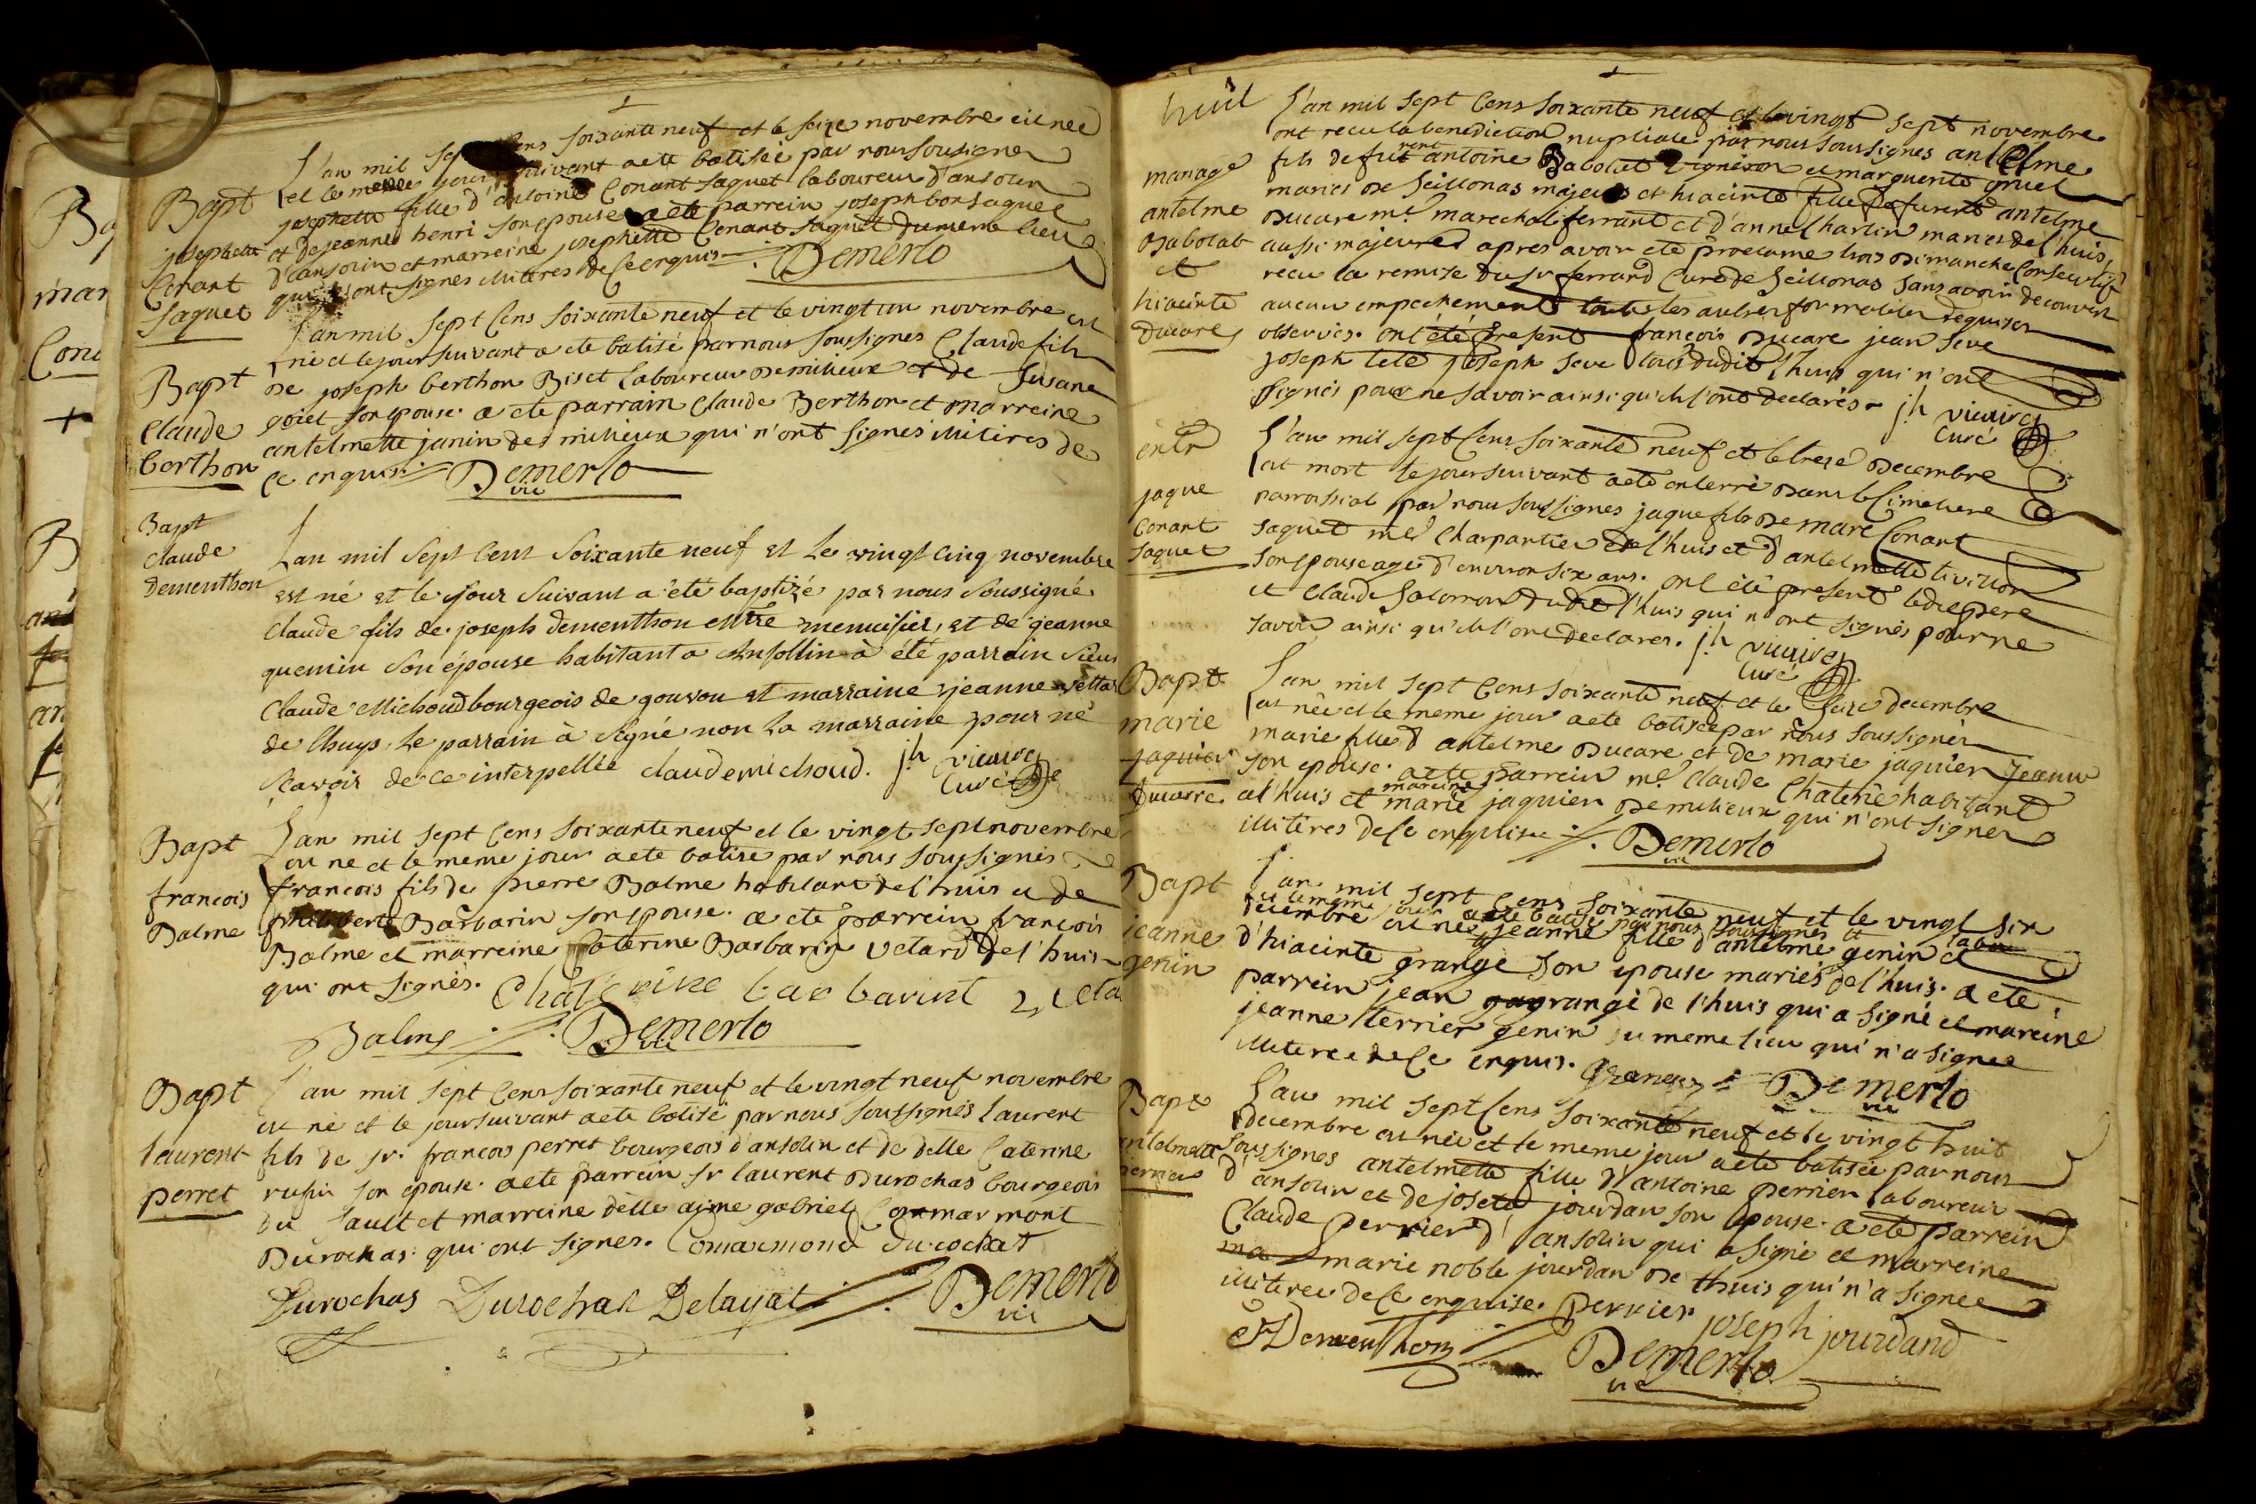 Bapt
josephette
Conant
Jaquet
L'an mil sept Cens soixante neuf et le seize novembre est née
et le meme jour suivant a ete batisée par nous soussignes
josephette fille d'antoine Conant Jaquet laboureur d'ansolin
et de jeanne henri son epouse a ete parrein joseph bon Jaquet
d'ansolin et marreine josephette Conant Jaquet du meme lieu
qui n'ont signes illitères de ce enquis Demerlo
Bapt
Claude
berthon
L'an mil sept Cens soixante neuf et le vingt un novembre est
né et le jour suivant a ete batisé par nous soussignes Claude fils
de joseph berthon Biset laboureur de milieux et de Susane
goiet son epouse. a ete parrain Claude Berthon et marreine
antelmette janin de milieux qui n'ont signés illitères de
ce enquis Demerlo
vic
Bapt
Claude
dementhon
Lan mil sept cent soixante neuf et le vingt cinq novembre
est né et le jour suivant a été baptizé par nous soussigné
Claude fils de joseph dementhon menuisier, et de jeanne
quemin son épouse habitant a Ansollin a été parrain sieur
Claude Michoud bourgeois de gouvou et marraine jeanne
de lhuys. le parrain à signé non la marraine pour ne
scavoir de ce interpellée claude michoud. jh
Curé
Bapt
francois
Balme
L'an mil sept Cens soixante neuf et le vingt sept novembre
est né et le meme jour a ete batisé par nous soussignés
francois fils de pierre Balme habitant de l'huis et de
Barbarin son epouse. a ete parrein francois
Balme et marreine Caterine Barbarin Vetard de l'huis
qui ont signés. Chatrine barbarint
Balme Demerlo
vic
Bapt
laurent
perret
L'an mil sept Cens soixante neuf et le vingt neuf novembre
est né et le jour suivant a ete batisé par nous soussignés laurent
fils de sr. francois perret bourgeois d'ansolin et de delle Caterine
rufin son epouse. a ete parrein sr laurent Durochas bourgeois
du Sault et marreine delle aime gabriel Conmarmont
Durochas. qui ont signes. Comarmond durochat
Durochas Durochat Delayat Demerlo
vic
huit
mariage
antelme
Babolat
et
hiacinte
Ducare
L'an mil sept Cens soixante neuf et le vingt sept novembre
ont recu la benediction nuptiale par nous soussignes antelme
fils de furent antoine Babolat et marguerite gruel
mariés de Seillonas majeur et hiacinte fille de furent antelme
Ducare me. marechal ferrant et d'anne Charlin mariés de l'huis,
aussi majeure apres avoir ete proclamé trois dimanche consecutif
recu la remise du sr ferrand Curé de Seillonas sans avoir decouvert
aucun empechement toutes les autres formalites requises
observées. ont été present francois Ducare jean Seve
joseph tete joseph Seve tous dudit l'huis qui n'ont
signés pour ne savoir ainsi qu'ils l'ont declarés. jh
Curé
entr
jaque
Conant
Jaquet
L'an mil sept Cens soixante neuf et le treze decembre
est mort le jour suivant a ete enterré dans le Cimetiere
parroissial par nous soussignes jaque fils de marc Conant
Jaquet me Charpantier de l'huis et d'antelmette tivillon
son epouse agé d'environ six ans. ont été present ledit pere
et Claude Salomon dudit l'huis qui n'ont signés pour ne
savoir ainsi qu'ils l'ont declarer. jh
Curé
Bapt
marie
jaquier
Ducarre
L'an mil sept Cens soixante neuf et le seize decembre
est née et le meme jour a ete batisée par nous soussignés
marie fille d'antelme Ducare et de marie jaquier
son epouse. a ete parrein me. Claude Chaterie habitant
a l'huis et marreine marie jaquier de milieux qui n'ont signer
illitères de ce enquise Demerlo
vic
Bapt
jeanne
genin
L'an mil sept Cens soixante neuf et le vingt six
et le meme jour a ete batisée par nous soussignés
decembre est née jeanne fille d'antelme genin et
d'hiacinte grange son epouse mariés de l'huis. a ete
parrein jean grange de l'huis qui a signé et mareine
jeanne terrier genin du meme lieu qui n'a signee
illiteree de ce enquis. Demerlo
vic
Bapt
antelmette
perrier
L'an mil sept Cens soixante neuf et le vingt huit
decembre est née et le meme jour a ete batisée par nous
soussignes antelmette fille d'antoine perrier laboureur
d'ansolin et de josete jourdan son epouse. a ete parrein
Claude perrier d'ansolin qui a signé et marreine
marie noble jourdan de lhuis qui n'a signee
illiteree de ce enquise. perrier joseph jourdand
Dementhon Demerlo
vic